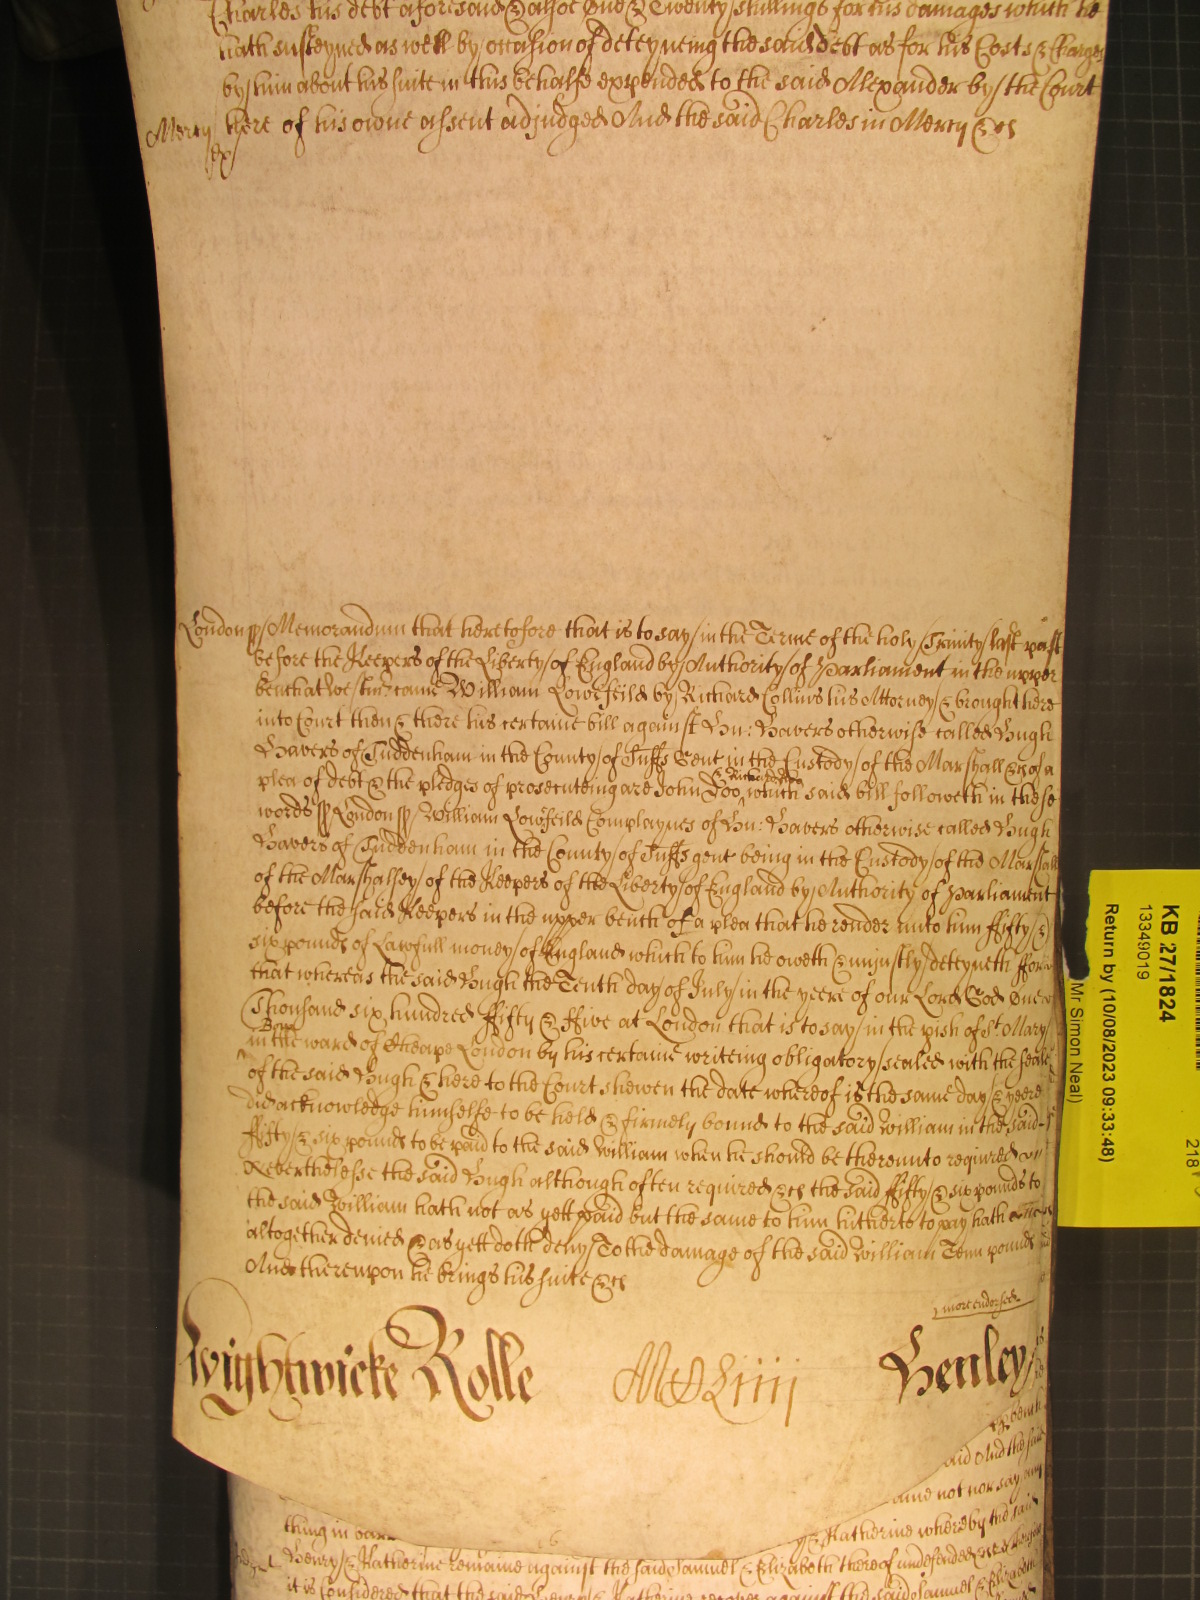 Charles his debt aforesaid & also One & Twenty shillings for his damages which he
hath susteyned as well by occasion of deteyneing the said debt as for his Costs & Charges
by him about his suite in this behalfe expended to the said Alexander by the Court
Mercy here of his owne assent adjudged And the said Charles in Mercy &c
London ss Memorandum that heretofore that is to say in the Terme of the holy Trinity last past
before the Keepers of the Liberty of England by Authority of Parliament in the upper
bench at Westmr came William Lowfeild by Richard Collins his Attorney & brought here
into Court then & there his certaine bill against Hu: Havers otherwise called Hugh
Havers of Tuddenham in the County of Suff Gent in the Custody of the Marshall &c of a
plea of debt & the pledges of prosecuteing are John Doo & Richard Roo which said bill followeth in these
words ss London ss William Lowfeild Complaynes of Hu: Havers otherwise called Hugh
Havers of Tuddenham in the County of Suff gent being in the Custody of the Marshall
of the Marshalsey of the Keepers of the Liberty of England by Authority of Parliament
before the said Keepers in the upper bench of a plea that he render unto him ffifty &
six pounds of Lawfull money of England which to him he oweth & unjustly deteyneth ffor
that whereas the said Hugh the Tenth day of July in the yeere of our Lord God One
Thousand six hundred ffifty & ffive at London that is to say in the pish of St Mary
Bow
in the ward of Cheape London by his certaine writeing obligatory sealed with the seale
of the said Hugh & here to the Court shewen the date whereof is the same day & yeere
did acknowledge himselfe to be held & firmely bound to the said William in the said
ffifty & six pounds to be paid to the said William when he should be thereunto required
Neverthelesse the said Hugh although often required &c the said ffifty & six pounds to
the said William hath not as yett paid but the same to him hitherto to pay hath
altogether denied & as yett doth deny To the damage of the said William Tenn pounds
And thereupon he brings his suite &c
more endorsed
Wightwicke Rolle MDLiiii Henley
bench
said And the said
came not nor say any
thing in barr & Katherine whereby the said
Henry & Katherine remaine against the said Samuel & Elizabeth thereof undefended
it is Considered that the said Henry & Katherine recover against the said Samuel & Elizabeth
KB 27/1824
13349019
Return by (10/08/2023 09:33:48)
Mr Simon Neal)